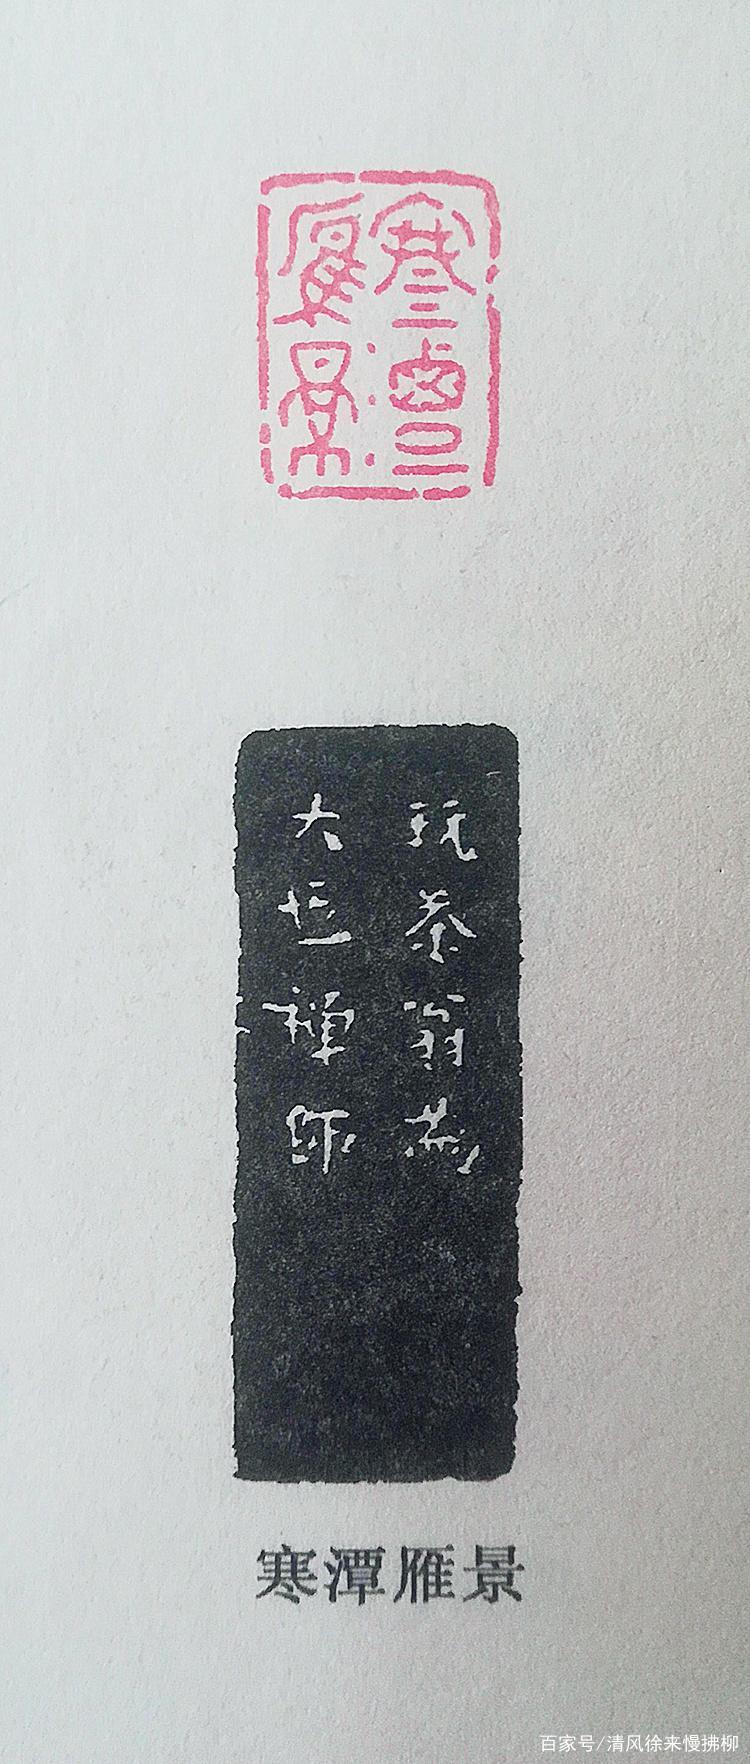 寒潭
雁景
玩茶翁為
大恒禅师
寒潭雁景
百家号/清风徐来慢拂柳